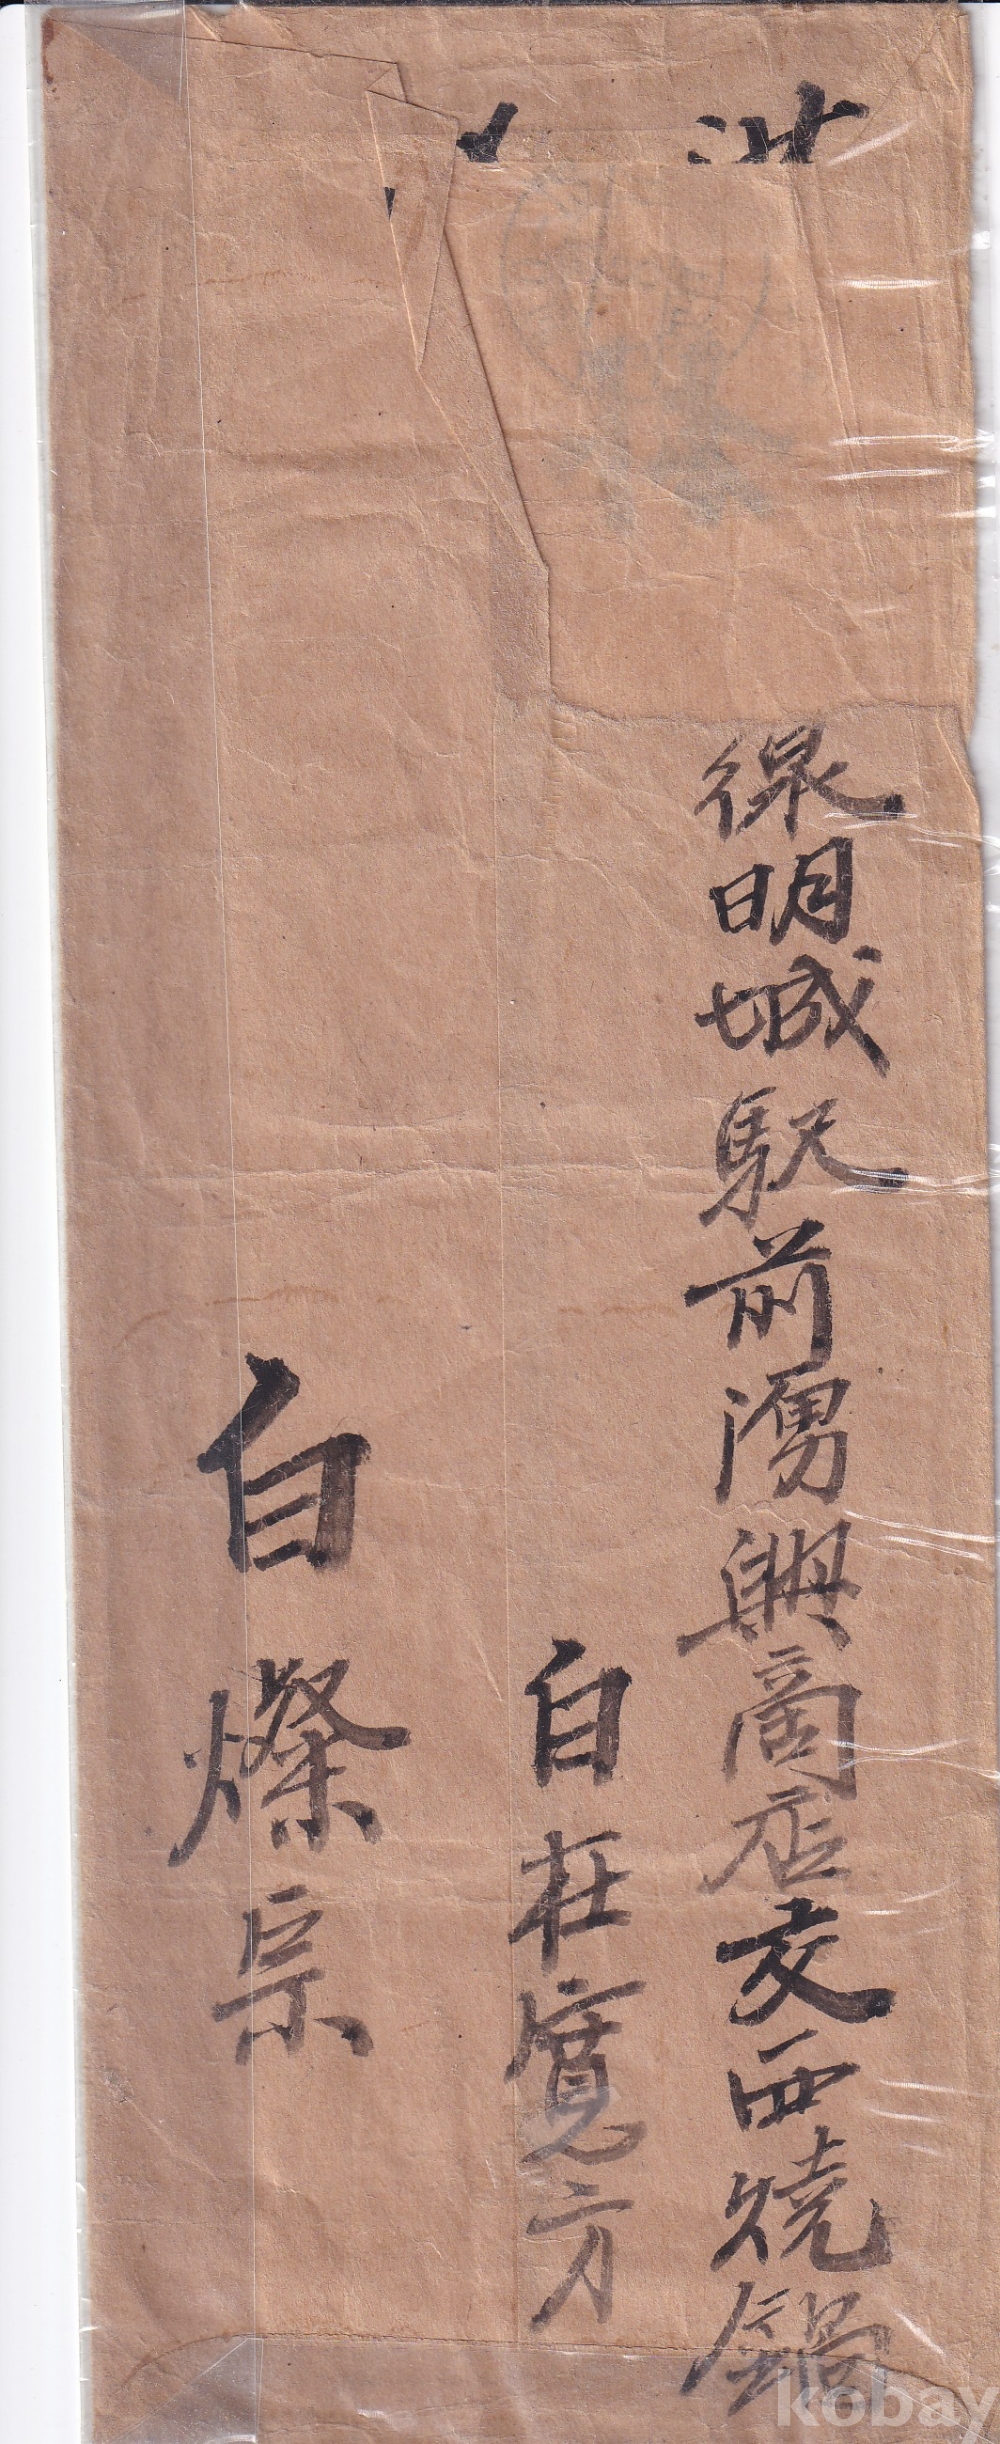 線明城駅前湧興商店交西燒鍋
白在寬方
白燦宗
kobay